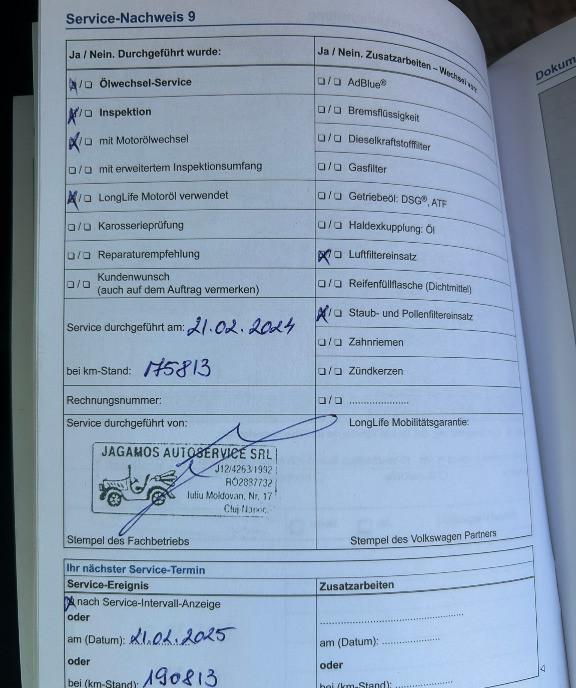 Service-Nachweis 9
Ja / Nein. Durchgeführt wurde:
Ölwechsel-Service
Inspektion
mit Motorölwechsel
mit erweitertem Inspektionsumfang
LongLife Motoröl verwendet
Karosserieprüfung
Reparaturempfehlung
Kundenwunsch
(auch auf dem Auftrag vermerken)
Service durchgeführt am: 21.02.2024
bei km-Stand: 175813
Rechnungsnummer:
Service durchgeführt von:
JAGAMOS AUTOSERVICE SRL
J12/4263/1992
RO2887732
Iuliu Moldovan, Nr. 17
Stempel des Fachbetriebs
Ja / Nein. Zusatzarbeiten – Wechsel von:
AdBlue®
Bremsflüssigkeit
Dieselkraftstofffilter
Gasfilter
Getriebeöl: DSG®, ATF
Haldexkupplung: Öl
Luftfiltereinsatz
Reifenfüllflasche (Dichtmittel)
Staub- und Pollenfiltereinsatz
Zahnriemen
Zündkerzen
LongLife Mobilitätsgarantie:
Stempel des Volkswagen Partners
Ihr nächster Service-Termin
Service-Ereignis
nach Service-Intervall-Anzeige
oder
am (Datum): 21.02.2025
oder
bei (km-Stand): 190813
Zusatzarbeiten
am (Datum):
oder
bei (km-Stand):
Dokum